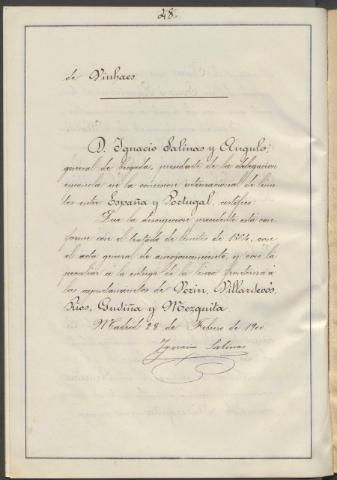 28.
de Vinhaes.
D. Ignacio Salinas y Angulo,
general de brigada, presidente de la delegación
española en la comision internacional de lími-
tes entre España y Portugal, certifico:
Que la descripcion precedente está con-
forme con el tratado de límites de 1864, con
el acta general de amojonamiento, y con la
peculiar á la entrega de la línea fronteriza á
los ayuntamientos de Verin, Villardevós,
Rios, Gudiña y Mezquita.
Madrid 28 de Febrero de 1900
Ignacio Salinas